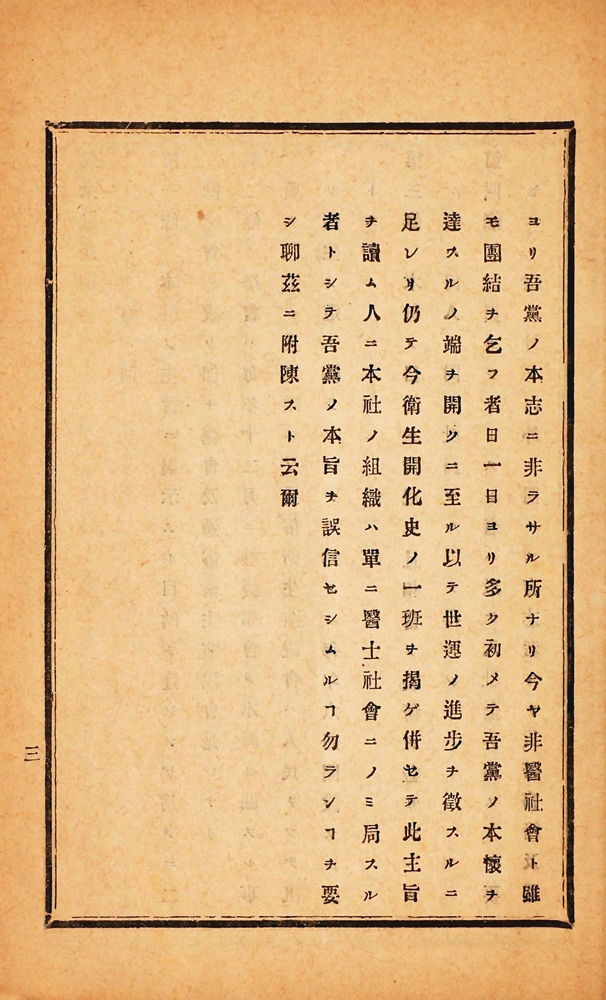 ヨリ吾黨ノ本志ニ非ラサル所ナリ今ヤ非醫社會ト雖
モ團結ヲ乞フ者日一日ヨリ多ク初メテ吾黨ノ本懷ヲ
達スルノ端ヲ開クニ至ル以テ世運ノ進步ヲ徵スルニ
足レリ仍テ今衛生開化史ノ一班ヲ揭ゲ併セテ此主旨
ヲ讀ム人ニ本社ノ組織ハ單ニ醫士社會ニノミ局スル
者トシテ吾黨ノ本旨ヲ誤信セシムルヿ勿ランヿヲ要
シ聊茲ニ附陳スト云爾
三